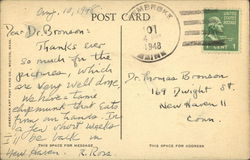 Aug. 10, 1948
POST CARD
PEMBROKE
1948
MAINE
1 CENT 1
Dear Dr. Bronson:
Thanks ever
so much for the
pictures, which
are very well done,
We have some
that eats
from our hands. In
a few short weeks
I'll be back in
New Haven. R. Ross
Dr. Thomas Bronson
169 Dwight St.
New Haven 11
Conn.
THIS SPACE FOR MESSAGE
THIS SPACE FOR ADDRESS